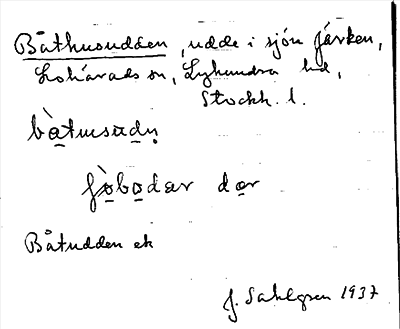 Båthusudden, udde i sjön Järken,
Lohärads sn, Lyhundra hd,
Stockh. l.
bàtusudn̥
fò̱bo̱dar do̱r
Båtudden ek
J. Sahlgren 1937